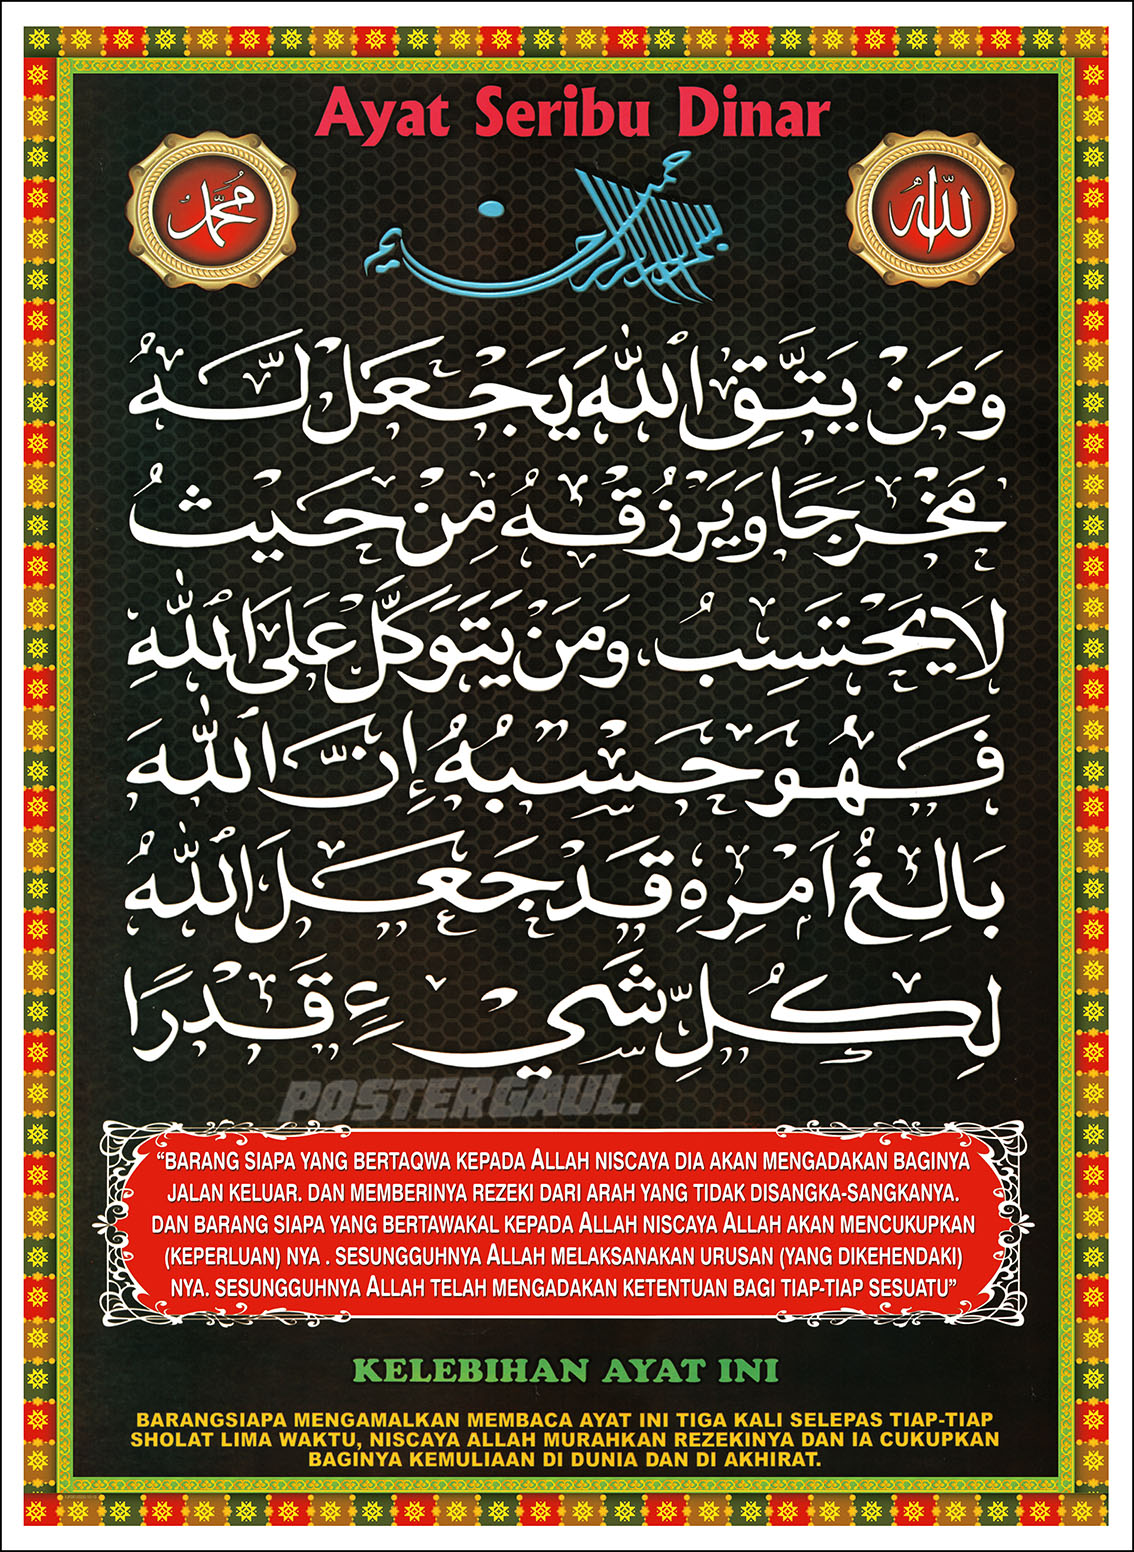 Ayat Seribu Dinar
محمد
الله
بسم الله الرحمن الرحيم
وَمَنْ يَتَّقِ اللّٰهَ يَجْعَلْ لَّهُ
مَخْرَجًا وَيَرْزُقْهُ مِنْ حَيْثُ
لَا يَحْتَسِبُ، وَمَنْ يَتَوَكَّلْ عَلَى اللّٰهِ
فَهُوَ حَسْبُهُ إِنَّ اللّٰهَ
بَالِغُ اَمْرِهِ قَدْ جَعَلَ اللّٰهُ
لِكُلِّ شَيْءٍ قَدْرًا
POSTERGAUL.
“BARANG SIAPA YANG BERTAQWA KEPADA ALLAH NISCAYA DIA AKAN MENGADAKAN BAGINYA
JALAN KELUAR. DAN MEMBERINYA REZEKI DARI ARAH YANG TIDAK DISANGKA-SANGKANYA.
DAN BARANG SIAPA YANG BERTAWAKAL KEPADA ALLAH NISCAYA ALLAH AKAN MENCUKUPKAN
(KEPERLUAN) NYA . SESUNGGUHNYA ALLAH MELAKSANAKAN URUSAN (YANG DIKEHENDAKI)
NYA. SESUNGGUHNYA ALLAH TELAH MENGADAKAN KETENTUAN BAGI TIAP-TIAP SESUATU”
KELEBIHAN AYAT INI
BARANGSIAPA MENGAMALKAN MEMBACA AYAT INI TIGA KALI SELEPAS TIAP-TIAP
SHOLAT LIMA WAKTU, NISCAYA ALLAH MURAHKAN REZEKINYA DAN IA CUKUPKAN
BAGINYA KEMULIAAN DI DUNIA DAN DI AKHIRAT.